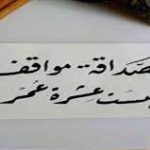 صداقة مواقف
يست عشرة عمر